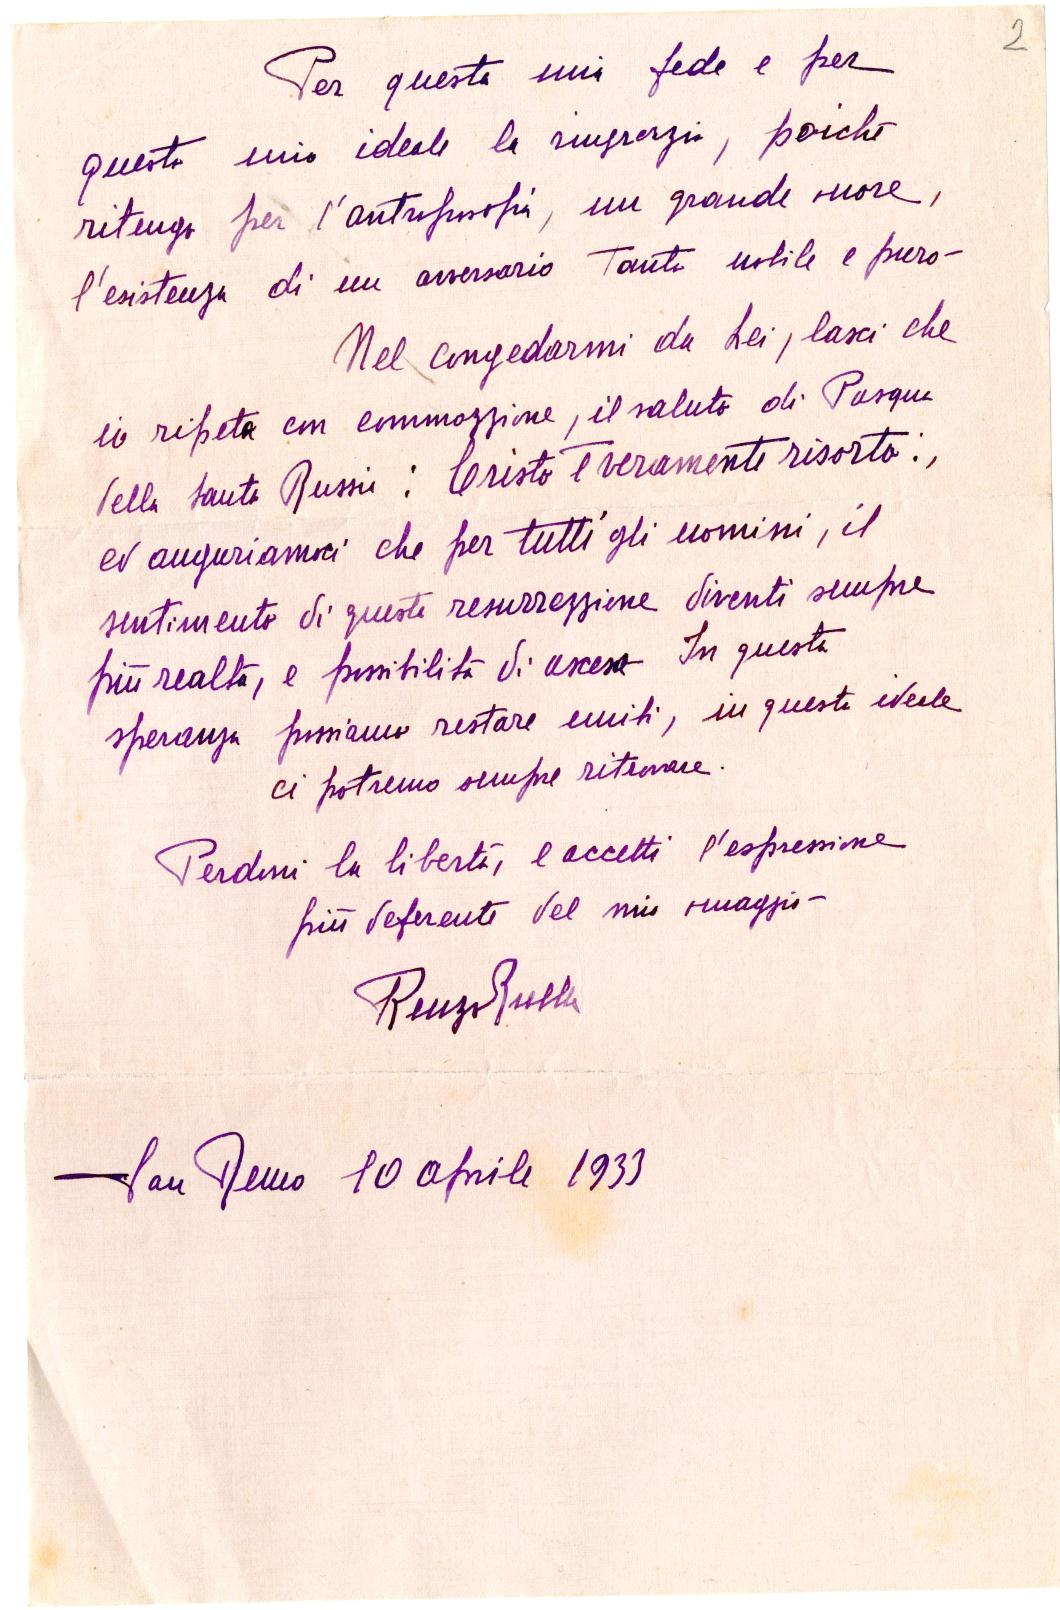 2
Per questa mia fede e per
questo mio ideale la ringrazio, poichè
ritengo per l'antroposofia, un grande onore,
l'esistenza di un avversario tanto nobile e puro-
Nel congedarmi da Lei, lasci che
io ripeta con commozzione, il saluto di Pasqua
della Santa Russia: Cristo è veramente risorto:,
ed auguriamoci che per tutti gli uomini, il
sentimento di questa resurrezzione diventi sempre
più realtà, e possibilità di ascesa In questa
speranza possiamo restare uniti, in questo ideale
ci potremo sempre ritrovare.
Perdoni la libertà, e accetti l'espressione
più deferente del mio omaggio-
Renzo
San Remo 10 aprile 1933